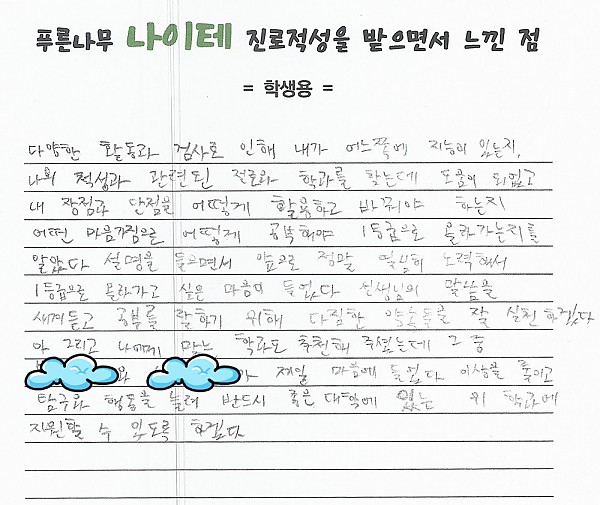 푸른나무 나이테 진로적성을 받으면서 느낀 점
= 학생용 =
다양한 활동과 검사로 인해 내가 어느쪽에 지능이 있는지,
나의 적성과 관련된 진로와 학과를 찾는데 도움이 되었고
내 장점과 단점을 어떻게 활용하고 바꿔야 하는지
어떤 마음가짐으로 어떻게 공부해야 1등급으로 올라가는지를
알았다 설명을 들으면서 앞으로 정말 열심히 노력해서
1등급으로 올라가고 싶은 마음이 들었다 선생님의 말씀을
새겨듣고 공부를 잘하기 위해 다짐한 약속들을 잘 실천하겠다
아 그리고 나에게 맞는 학과도 추천해 주셨는데 그 중
와 가 제일 마음에 들었다 이상을 줄이고
탐구와 행동을 늘려 반드시 좋은 대학에 있는 위 학과에
지원할 수 있도록 하겠다